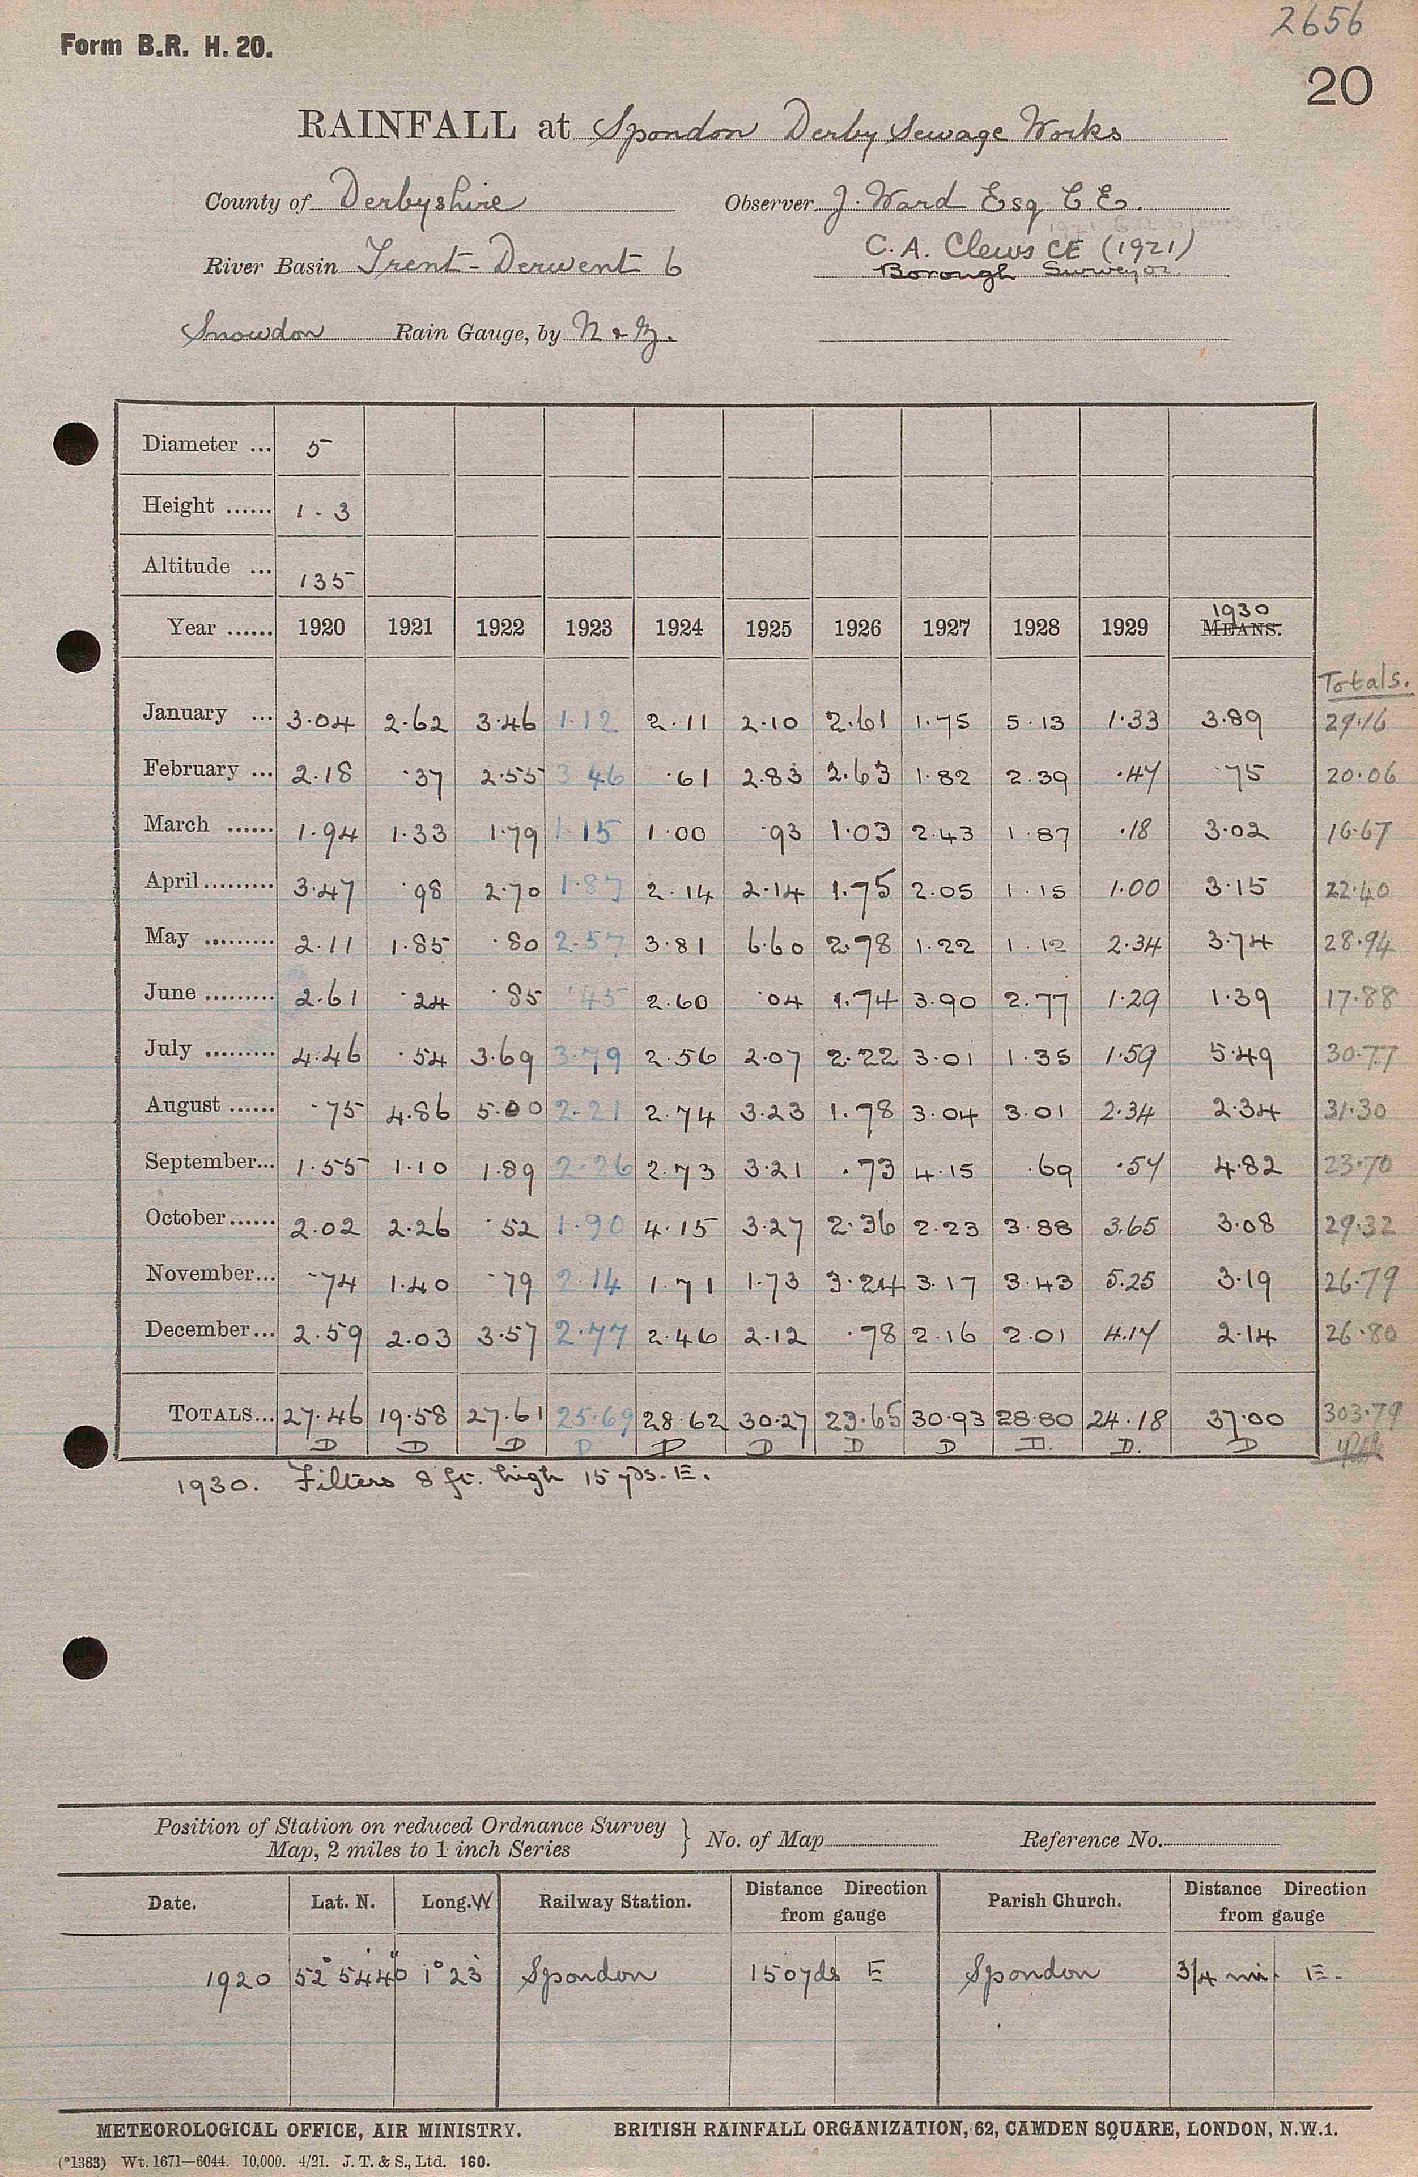 2656
Form B.R. H. 20.
20
RAINFALL at Spondon Derby Sewage Works
County of Derbyshire Observer J. Ward Esq C.E.
River Basin Trent-Derwent 6 C. A. Clews CE (1921)
Borough Surveyor
Snowdon Rain Gauge, by N & Z.
Diameter ... 5
Height ...... 1 - 3
Altitude ... 135
1930
Year ...... 1920 1921 1922 1923 1924 1925 1926 1927 1928 1929 MEANS.
Totals.
January ... 3.04 2.62 3.46 1.12 2.11 2.10 2.61 1.75 5.13 1.33 3.89 29.16
February ... 2.18 .37 2.55 3.46 .61 2.83 2.63 1.82 2.39 .47 .75 20.06
March ...... 1.94 1.33 1.79 1.15 1.00 .93 1.03 2.43 1.87 .18 3.02 16.67
April ......... 3.47 .98 2.70 1.87 2.14 2.14 1.75 2.05 1.15 1.00 3.15 22.40
May ......... 2.11 1.85 .80 2.57 3.81 6.60 2.78 1.22 1.12 2.34 3.74 28.94
June ......... 2.61 .24 .85 .45 2.60 .04 1.74 3.90 2.77 1.29 1.39 17.88
July ......... 4.46 .54 3.69 3.79 2.56 2.07 2.22 3.01 1.35 1.59 5.49 30.77
August ...... .75 4.86 5.00 2.21 2.74 3.23 1.78 3.04 3.01 2.34 2.34 31.30
September... 1.55 1.10 1.89 2.26 2.73 3.21 .73 4.15 .69 .57 4.82 23.70
October...... 2.02 2.26 .52 1.90 4.15 3.27 2.36 2.23 3.88 3.65 3.08 29.32
November... .74 1.40 .79 2.14 1.71 1.73 3.24 3.17 3.43 5.25 3.19 26.79
December... 2.59 2.03 3.57 2.77 2.46 2.12 .78 2.16 2.01 4.17 2.14 26.80
TOTALS... 27.46 19.58 27.61 25.69 28.62 30.27 23.65 30.93 28.80 24.18 37.00 303.79
D D D D D D D D D. D. D
1930. Filters 8 ft. high 15 yds. E.
Position of Station on reduced Ordnance Survey
Map, 2 miles to 1 inch Series } No. of Map Reference No.
Date. Lat. N. Long.W Railway Station. Distance Direction from gauge Parish Church. Distance Direction from gauge
1920 52° 54' 40" 1° 23' Spondon 150 yds E Spondon 3/4 mi. E.
METEOROLOGICAL OFFICE, AIR MINISTRY. BRITISH RAINFALL ORGANIZATION, 62, CAMDEN SQUARE, LONDON, N.W.1.
(*1383) Wt. 1671—6044. 10,000. 4/21. J. T. & S., Ltd. 160.